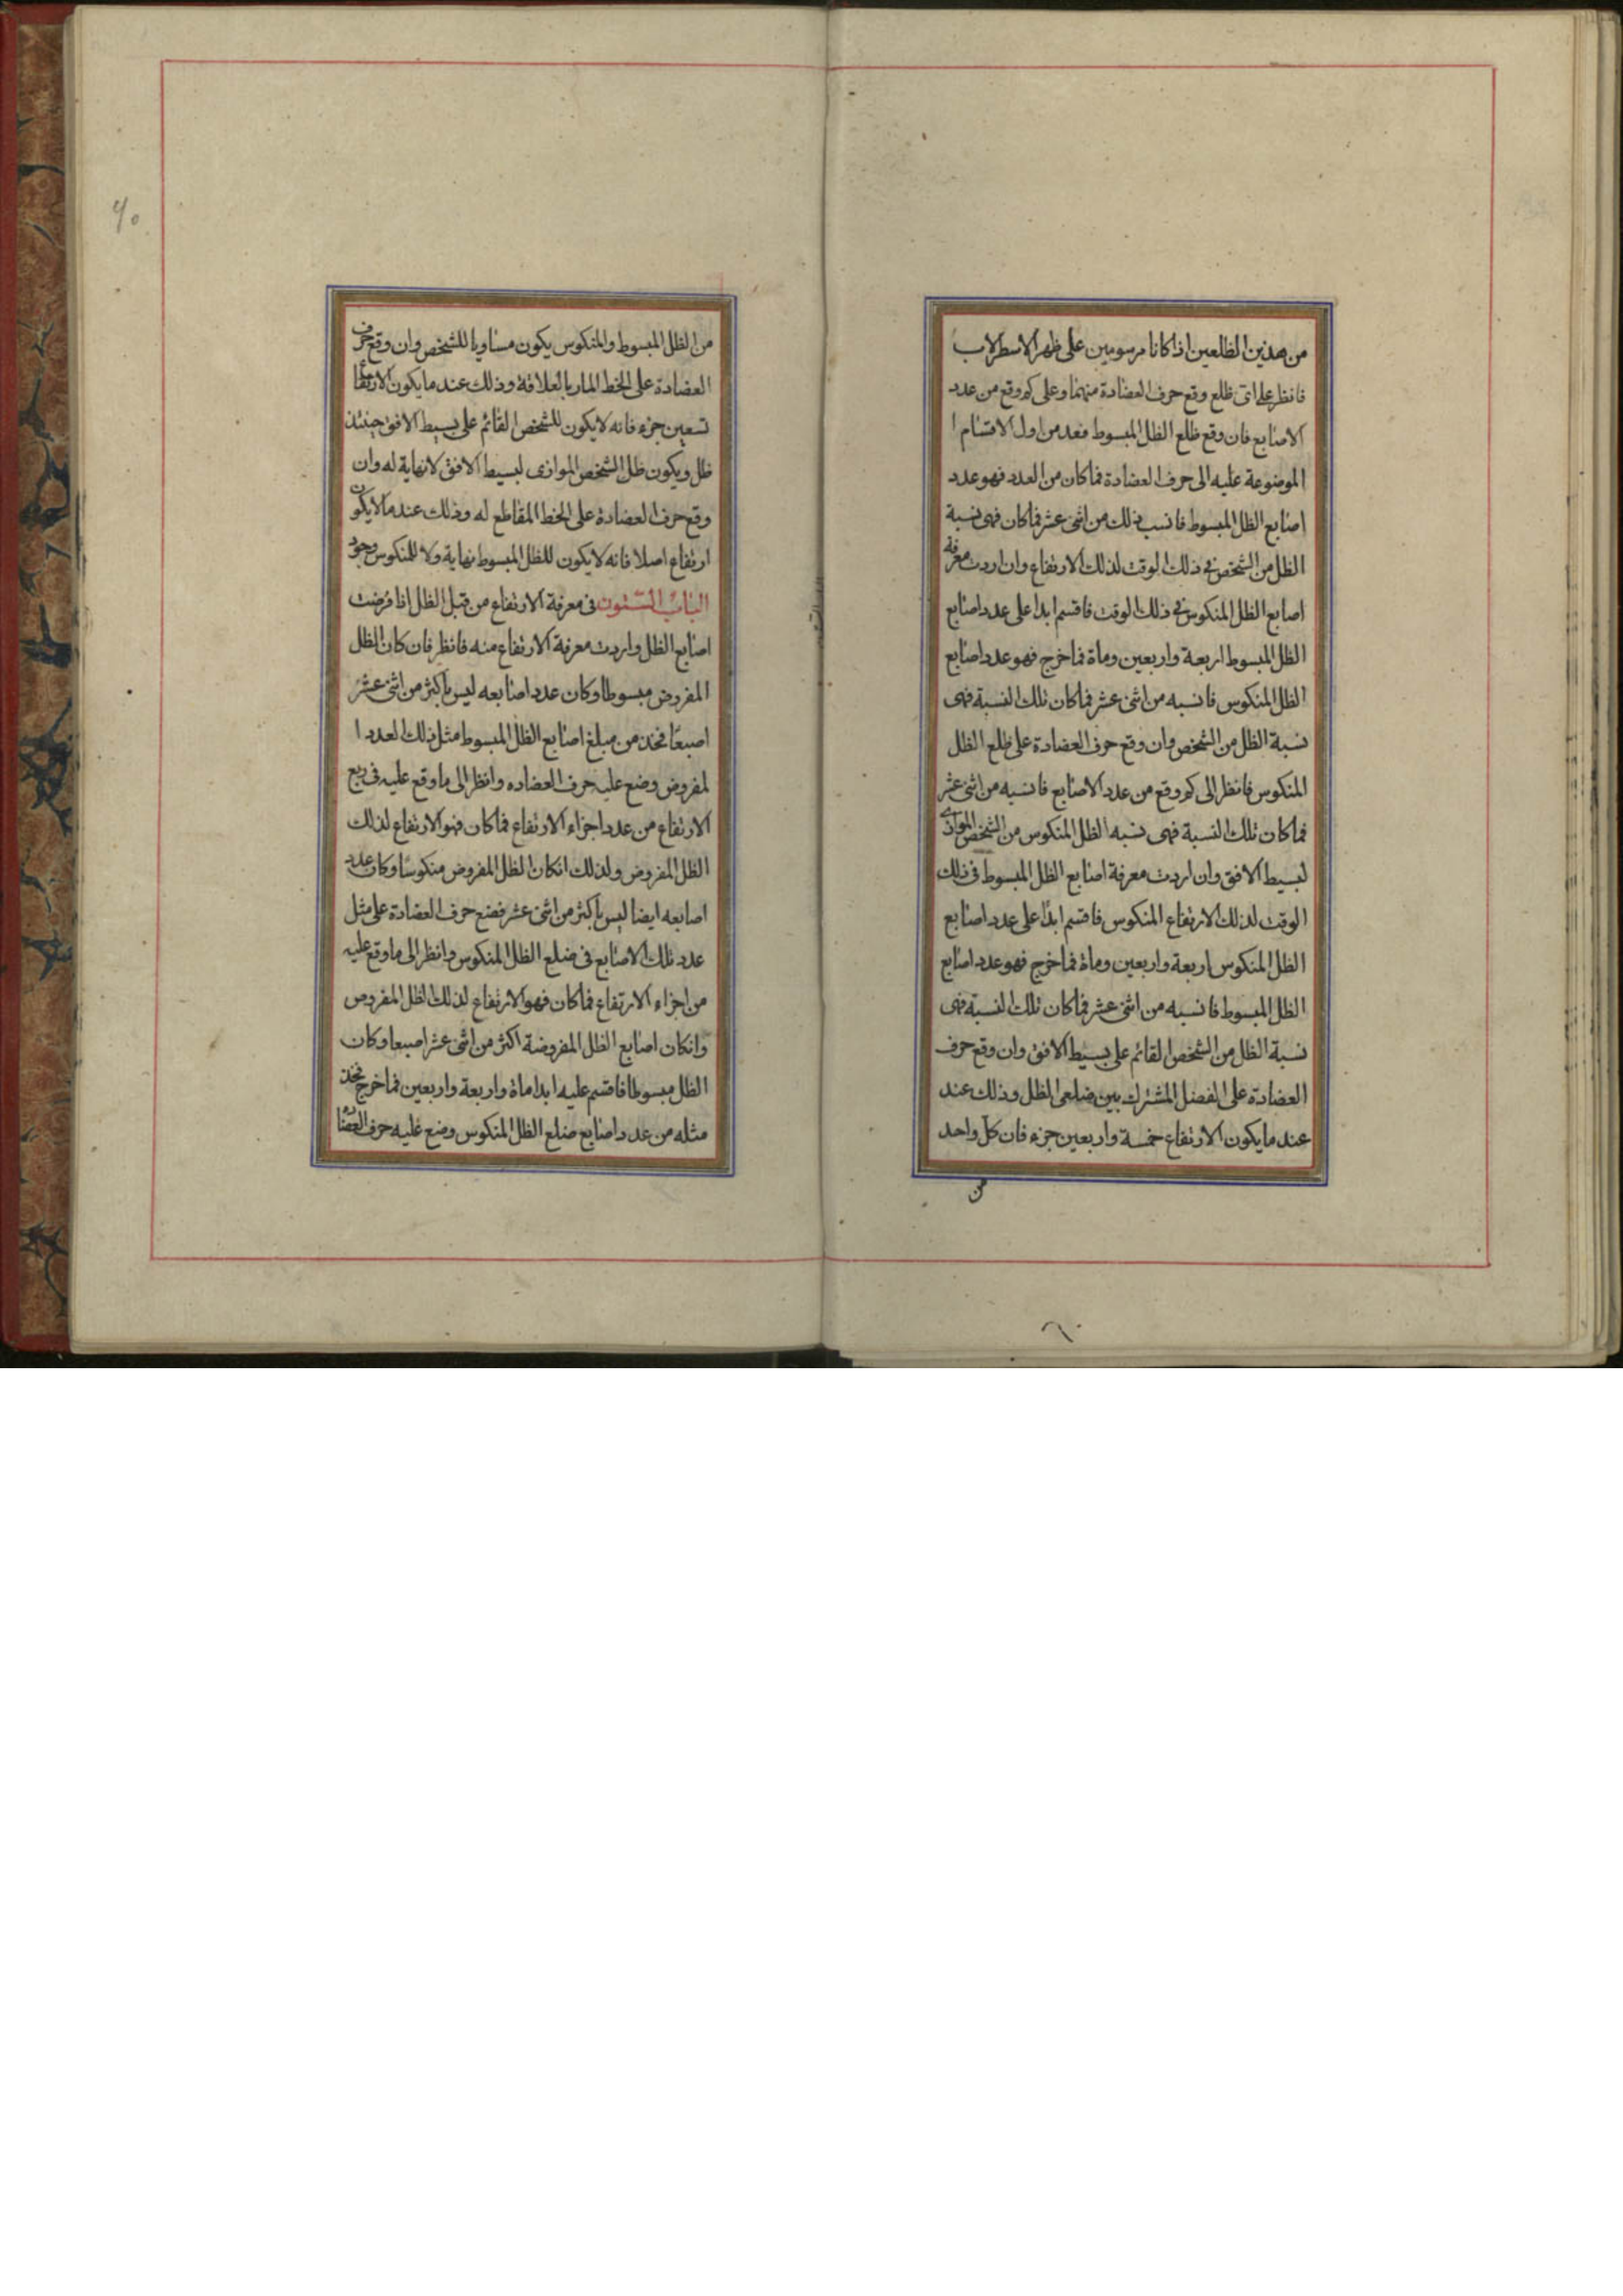 من هذين الظلعين اذا كانا مرسومين على ظهر الاسطرلاب
فانظر على اى ظلع وقع حرف العضادة منهما وعلى كم وقع من عدد
الاصابع فان وقع ظلع الظل المبسوط فعد من اول الاقسام ا
الموضوعة عليه الى حرف العضادة فما كان من العدد فهو عدد
اصابع الظل المبسوط فانسب ذلك من اثنى عشر فما كان فهى نسبة
الظل من الشخص فى ذلك الوقت لذلك الارتفاع وان اردت معرفة
اصابع الظل المنكوس فى ذلك الوقت فاقسم ابدا على عدد اصابع
الظل المبسوط اربعة واربعين وماة فما خرج فهو عدد اصابع
الظل المنكوس فانسبه من اثنى عشر فما كان تلك النسبة فهى
نسبة الظل من الشخص وان وقع حرف العضادة على ظلع الظل
المنكوس فانظر الى كم وقع من عدد الاصابع فانسبه من اثنى عشر
فما كان تلك النسبة فهى نسبه الظل المنكوس من الشخص الموازى
لبسيط الافق وان اردت معرفة اصابع الظل المبسوط فى ذلك
الوقت لذلك الارتفاع المنكوس فاقسم ابدًا على عدد اصابع
الظل المنكوس اربعة واربعين وماة فما خرج فهو عدد اصابع
الظل المبسوط فانسبه من اثنى عشر فما كان تلك النسبة فهى
نسبة الظل من الشخص القائم على بسيط الافق وان وقع حرف
العضادة على الفصل المشترك بين ضلعى الظل وذلك عند
عند ما يكون الارتفاع خمسة واربعين جزء فان كل واحد
من
من الظل المبسوط والمنكوس يكون مساويا للشخص وان وقع حرف
العضادة على الخط المار بالعلاقة وذلك عند ما يكون الارتفاع
تسعين جزء فانه لا يكون للشخص القائم على بسيط الافق حينئذ
ظل ويكون ظل الشخص الموازى لبسيط الافق لا نهاية له وان
وقع حرف العضادة على الخط المقاطع له وذلك عند ما لا يكون
ارتفاع اصلا فانه لا يكون للظل المبسوط نهاية ولا للمنكوس وجود
الباب الستون فى معرفة الارتفاع من قبل الظل اذا فرضت
اصابع الظل واردت معرفة الارتفاع منه فانظر فان كان الظل
المفروض مبسوطا وكان عدد اصابعه ليس باكثر من اثنى عشر
اصبعًا فخذ من مبلغ اصابع الظل المبسوط مثل ذلك العدد ا
لمفروض وضع عليه حرف العضاده وانظر الى ما وقع عليه فى ربع
الارتفاع من عدد اجزاء الارتفاع فما كان فهو الارتفاع لذلك
الظل المفروض ولذلك انكان الظل المفروض منكوسًا وكان عدد
اصابعه ايضا ليس باكثر من اثنى عشر فضع حرف العضادة على مثل
عدد تلك الاصابع فى ضلع الظل المنكوس وانظر الى ما وقع عليه
من اجزاء الارتفاع فما كان فهو الارتفاع لذلك الظل المفروض
وانكان اصابع الظل المفروضة اكثر من اثنى عشر اصبعا وكان
الظل مبسوطا فاقسم عليه ابدا ماة واربعة واربعين فما خرج فخذ
مثله من عدد اصابع ضلع الظل المنكوس وضع عليه حرف العضادة